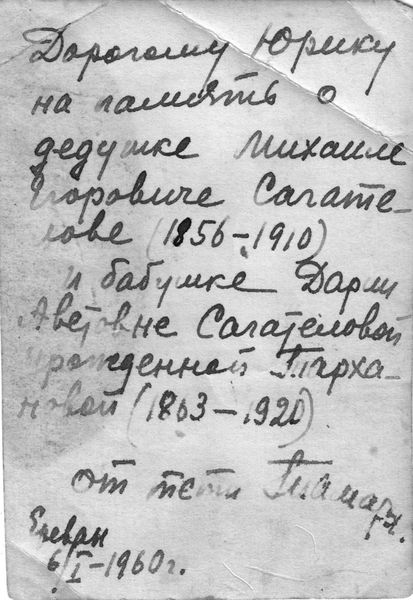 Дорогому Юрику
на память о
дедушке Михаиле
Егоровиче Сагате-
лове (1856-1910)
и бабушке Дарии
Аветовне Сагателовой
урожденной Тарха-
новой (1863-1920)
от тёти Тамары.
Ереван
6/I-1960г.